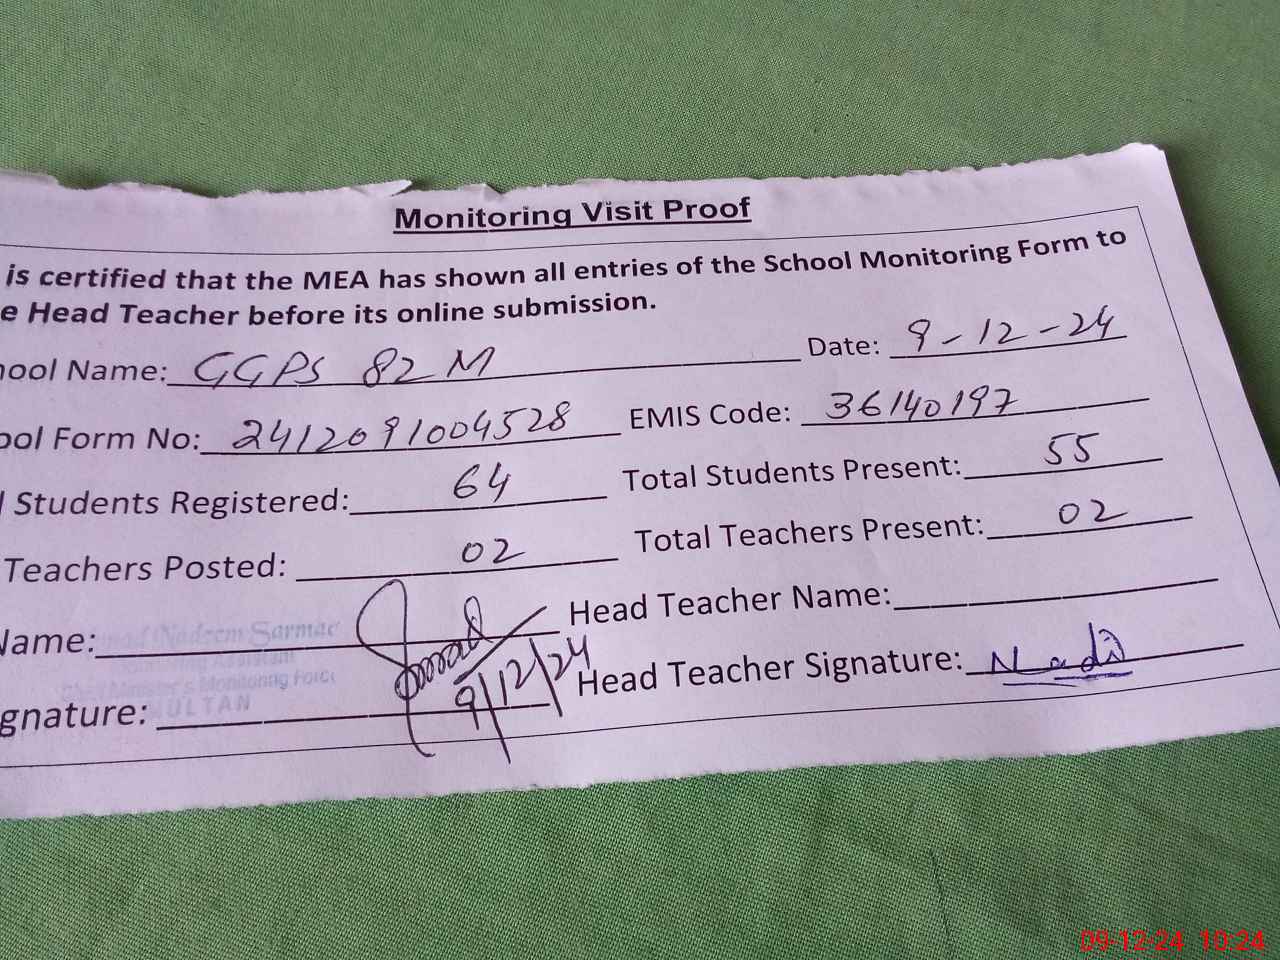 Monitoring Visit Proof
is certified that the MEA has shown all entries of the School Monitoring Form to
e Head Teacher before its online submission.
ool Name: GGPS 82 M Date: 9-12-24
ool Form No: 2412091004528 EMIS Code: 36140197
l Students Registered: 64 Total Students Present: 55
Teachers Posted: 02 Total Teachers Present: 02
Name: Nadeem Sarmad Head Teacher Name:
Monitoring Assistant
Chief Minister's Monitoring Force
MULTAN
gnature: 9/12/24 Head Teacher Signature:
09-12-24 10:24